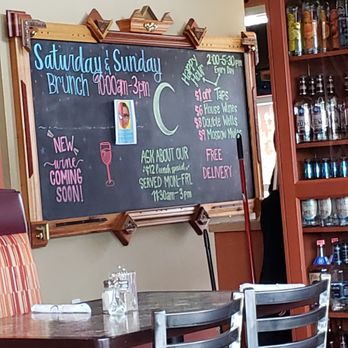 Saturday & Sunday
Brunch 10:00am-3pm
Happy Hour
2:00-5:30pm
Every Day
$1 off Taps
$6 House Wines
$8 Double Wells
$9 Moscow Mules
NEW
wine
COMING
SOON!
ASK ABOUT OUR
$12 lunch special
SERVED MON-FRI.
11:30am-3pm
FREE
DELIVERY